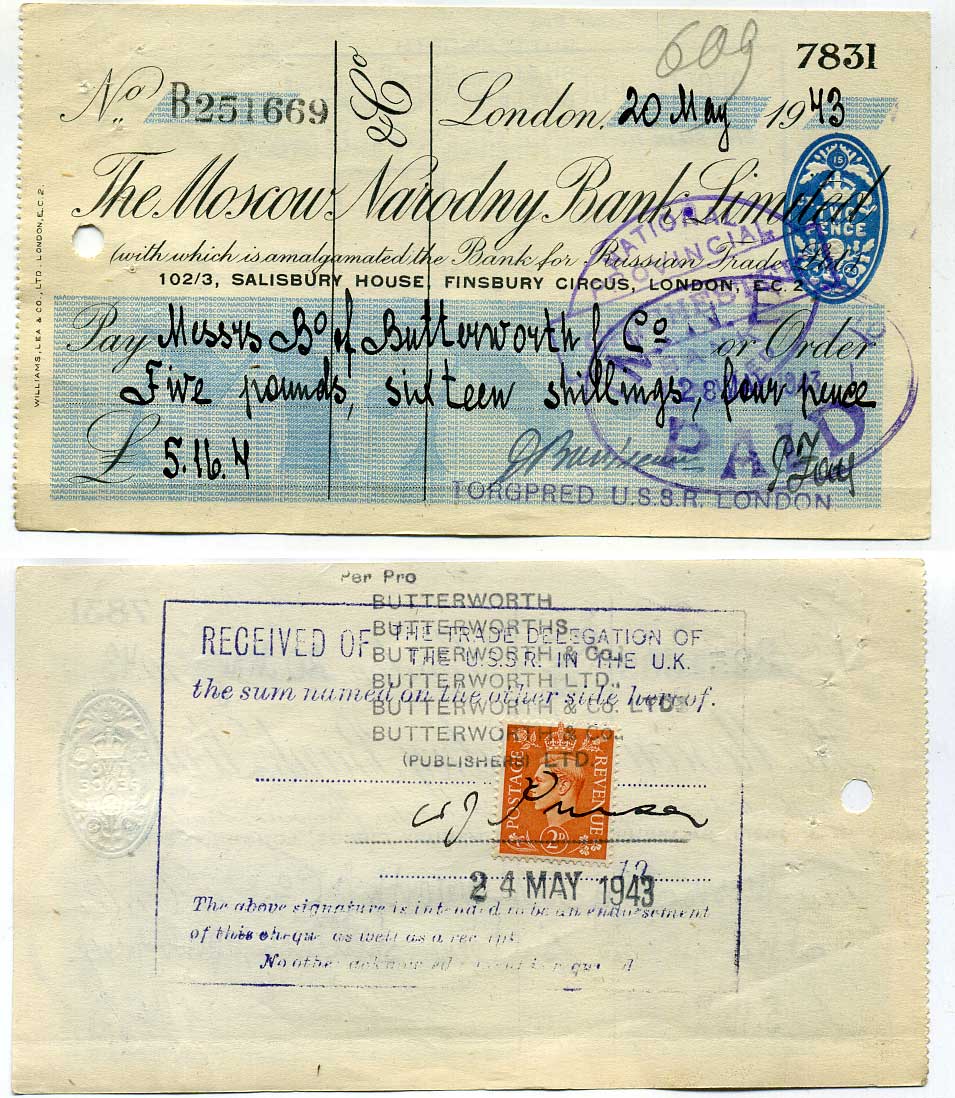 609
7831
No. B251669
& Co
London, 20 May 1943
The Moscow Narodny Bank Limited
(with which is amalgamated the Bank for Russian Trade Ltd.)
102/3, SALISBURY HOUSE, FINSBURY CIRCUS, LONDON, E.C. 2
WILLIAMS, LEA & CO., LTD. LONDON, E.C. 2.
NATIONAL
PROVINCIAL
Pay Messrs Bo of Butterworth & Co or Order
28 MAY 1943
Five pounds, sixteen shillings, four pence
PAID
£ 5.16.4
TORGPRED U.S.S.R. LONDON
Per Pro
BUTTERWORTH
BUTTERWORTHS
BUTTERWORTH & Co.,
BUTTERWORTH LTD.,
BUTTERWORTH & CO. LTD.
BUTTERWORTH & Co.
(PUBLISHERS) LTD.
RECEIVED OF THE TRADE DELEGATION OF
THE U.S.S.R. IN THE U.K.
the sum named on the other side hereof.
POSTAGE REVENUE
2D
24 MAY 1943
19
The above signature is intended to be an endorsement
of this cheque as well as a receipt.
No other acknowledgement is required